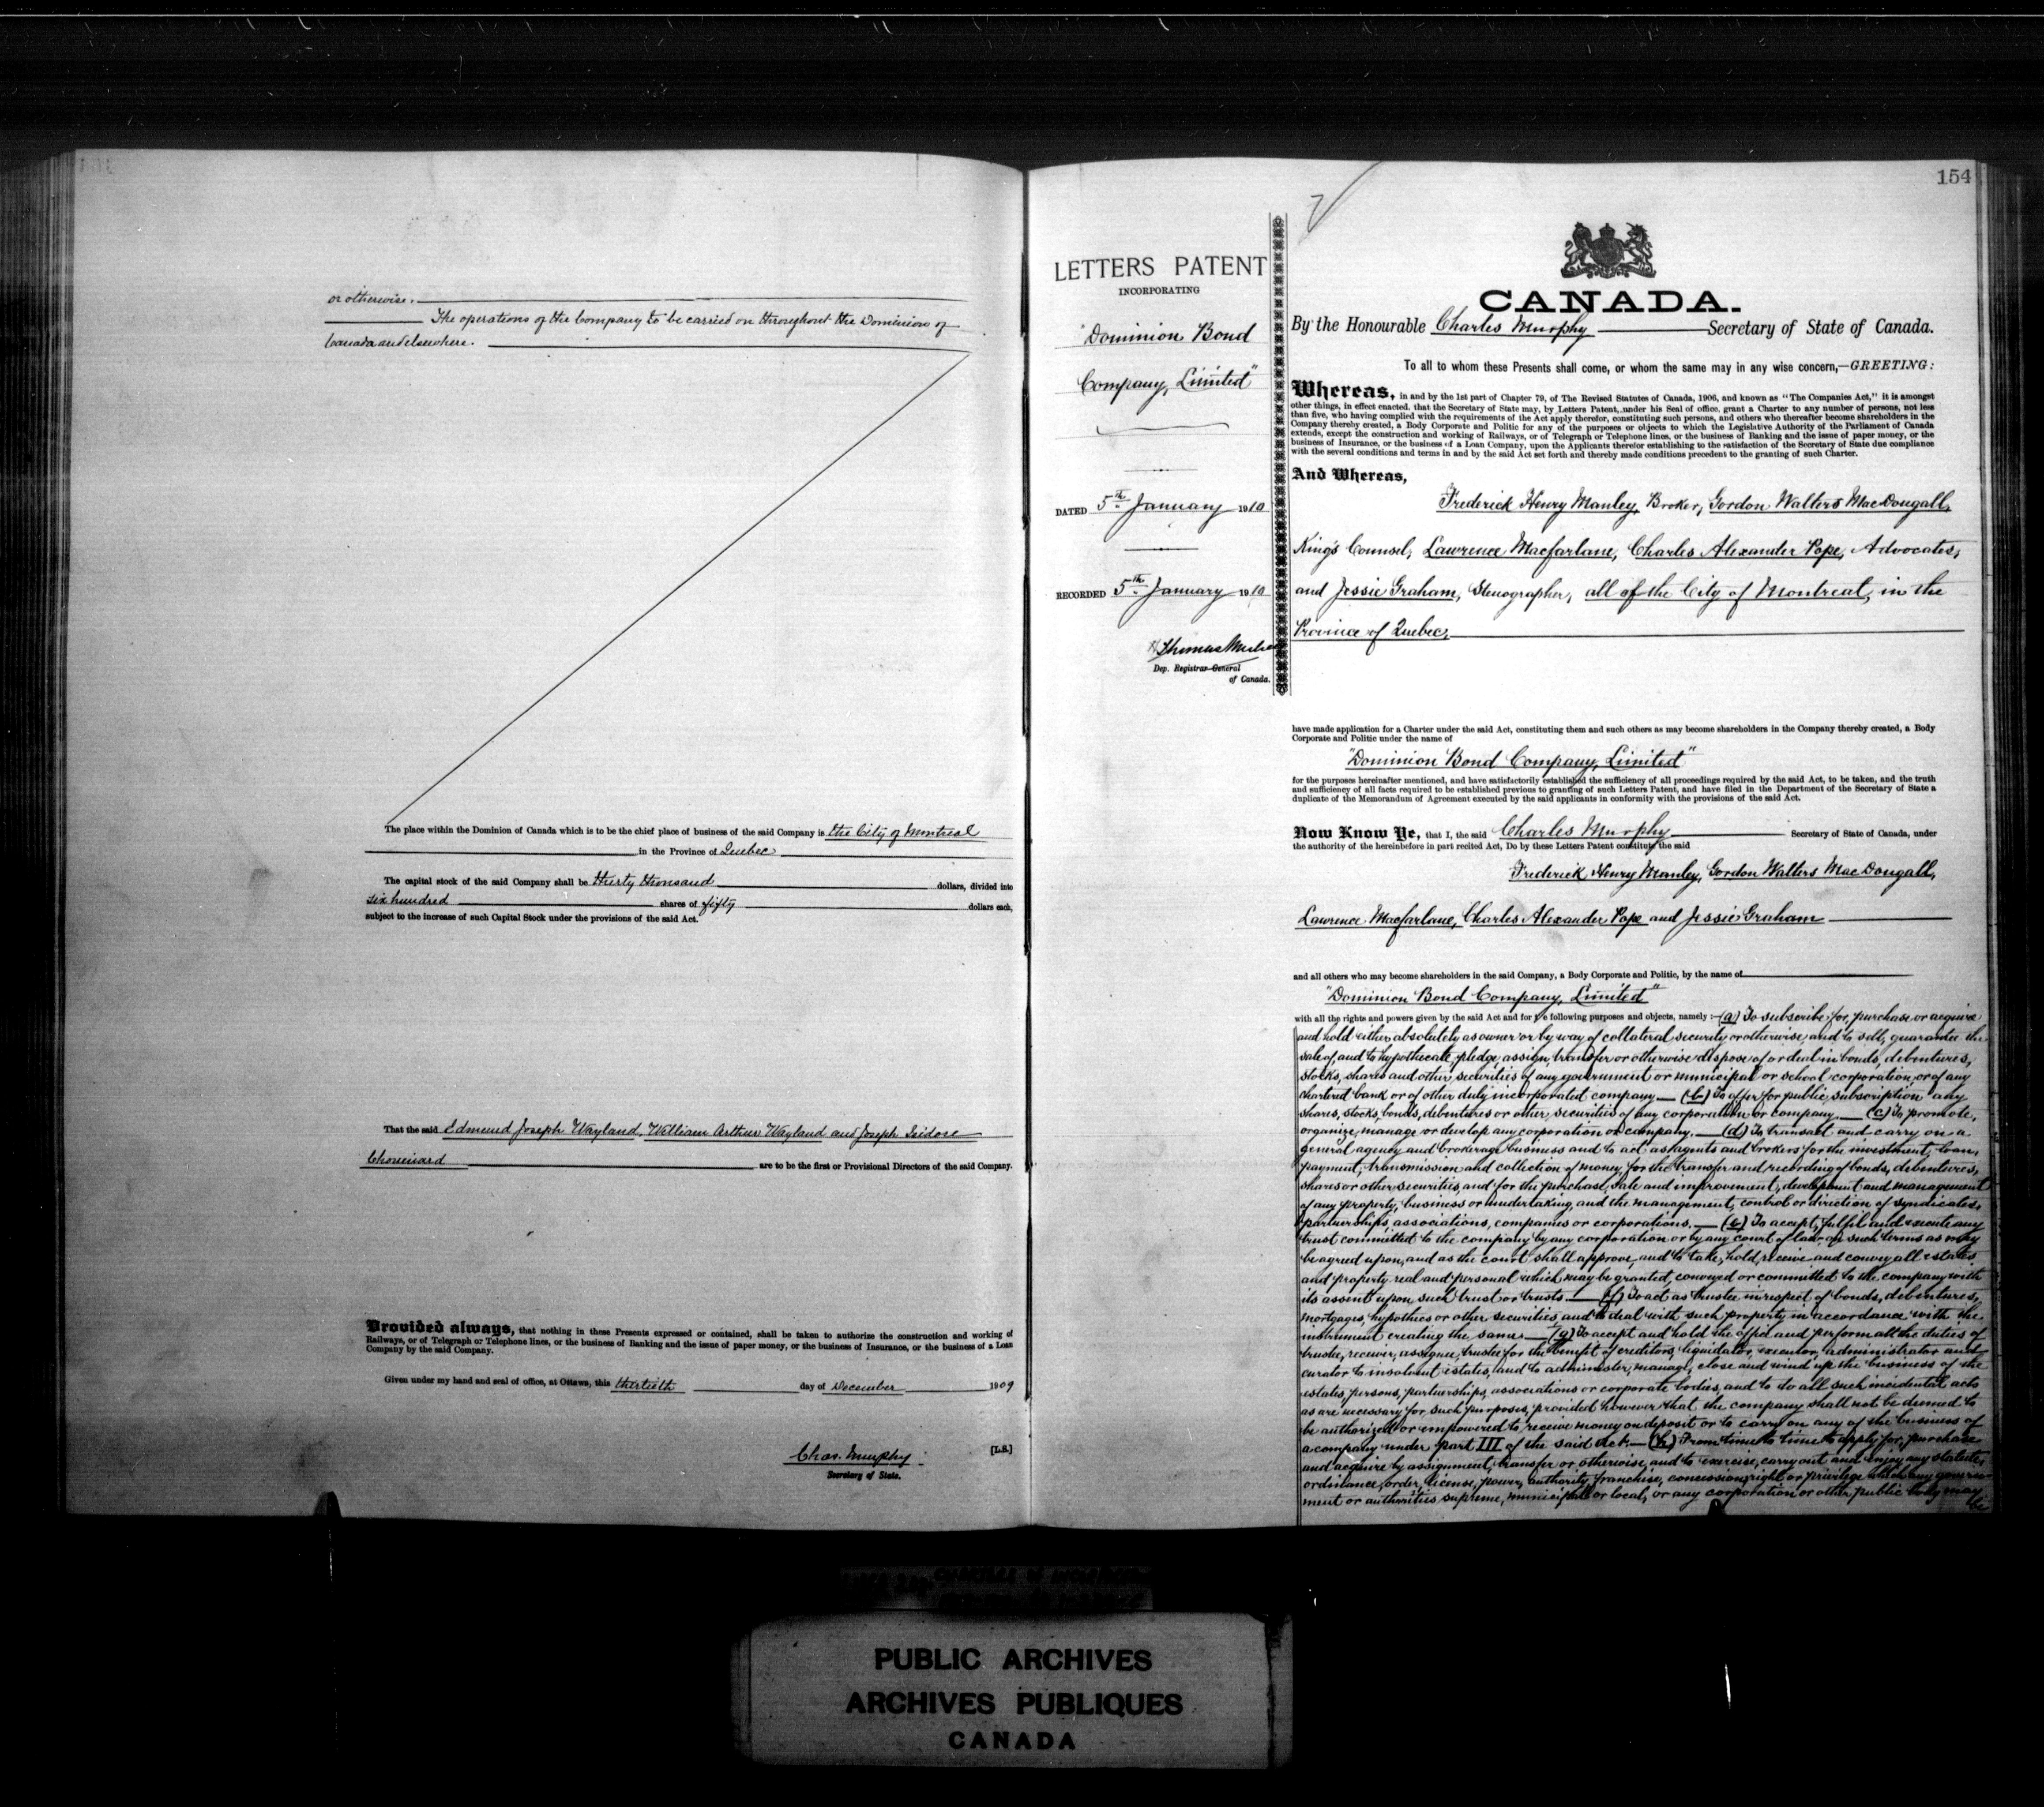 or otherwise.
The operations of the Company to be carried on throughout the Dominion of
Canada and elsewhere.
The place within the Dominion of Canada which is to be the chief place of business of the said Company is the City of Montreal
in the Province of Quebec
The capital stock of the said Company shall be thirty thousand dollars, divided into
six hundred shares of fifty dollars each,
subject to the increase of such Capital Stock under the provisions of the said Act.
That the said Edmund Joseph Wayland, William Arthur Wayland and Joseph Isidore
Chouinard are to be the first or Provisional Directors of the said Company.
Provided always, that nothing in these Presents expressed or contained, shall be taken to authorize the construction and working of
Railways, or of Telegraph or Telephone lines, or the business of Banking and the issue of paper money, or the business of Insurance, or the business of a Loan
Company by the said Company.
Given under my hand and seal of office, at Ottawa, this thirtieth day of December 1909
Chas. Murphy [L.S.]
Secretary of State.
154
LETTERS PATENT
INCORPORATING
"Dominion Bond
Company, Limited"
DATED 5th January 1910
RECORDED 5th January 1910
Thomas
Dep. Registrar General
of Canada.
CANADA.
By the Honourable Charles Murphy Secretary of State of Canada.
To all to whom these Presents shall come, or whom the same may in any wise concern,—GREETING:
Whereas, in and by the 1st part of Chapter 79, of The Revised Statutes of Canada, 1906, and known as "The Companies Act," it is amongst
other things, in effect enacted, that the Secretary of State may, by Letters Patent, under his Seal of office, grant a Charter to any number of persons, not less
than five, who having complied with the requirements of the Act apply therefor, constituting such persons, and others who thereafter become shareholders in the
Company thereby created, a Body Corporate and Politic for any of the purposes or objects to which the Legislative Authority of the Parliament of Canada
extends, except the construction and working of Railways, or of Telegraph or Telephone lines, or the business of Banking and the issue of paper money, or the
business of Insurance, or the business of a Loan Company, upon the Applicants therefor establishing to the satisfaction of the Secretary of State due compliance
with the several conditions and terms in and by the said Act set forth and thereby made conditions precedent to the granting of such Charter.
And Whereas,
Frederick Henry Manley, Broker, Gordon Walters MacDougall,
King's Counsel, Lawrence Macfarlane, Charles Alexander Pope, Advocates,
and Jessie Graham, Stenographer, all of the City of Montreal, in the
Province of Quebec,
have made application for a Charter under the said Act, constituting them and such others as may become shareholders in the Company thereby created, a Body
Corporate and Politic under the name of
"Dominion Bond Company, Limited"
for the purposes hereinafter mentioned, and have satisfactorily established the sufficiency of all proceedings required by the said Act, to be taken, and the truth
and sufficiency of all facts required to be established previous to granting of such Letters Patent, and have filed in the Department of the Secretary of State a
duplicate of the Memorandum of Agreement executed by the said applicants in conformity with the provisions of the said Act.
Now Know Ye, that I, the said Charles Murphy Secretary of State of Canada, under
the authority of the hereinbefore in part recited Act, Do by these Letters Patent constitute the said
Frederick Henry Manley, Gordon Walters MacDougall,
Lawrence Macfarlane, Charles Alexander Pope and Jessie Graham
and all others who may become shareholders in the said Company, a Body Corporate and Politic, by the name of
"Dominion Bond Company, Limited"
with all the rights and powers given by the said Act and for the following purposes and objects, namely:—(a) To subscribe for, purchase or acquire
and hold either absolutely as owner or by way of collateral security or otherwise, and to sell, guarantee the
sale of, and to hypothecate, pledge, assign, transfer or otherwise dispose of or deal in bonds, debentures,
stocks, shares and other securities of any government or municipal or school corporation, or of any
chartered bank or of other duly incorporated company. (b) To offer for public subscription any
shares, stocks, bonds, debentures or other securities of any corporation or company. (c) To promote,
organize, manage or develop any corporation or company. (d) To transact and carry on a
general agency and brokerage business and to act as agents and brokers for the investment, loan,
payment, transmission and collection of money, for the transfer and recording of bonds, debentures,
shares or other securities, and for the purchase, sale and improvement, development and management
of any property, business or undertaking, and the management, control or direction of syndicates,
partnerships, associations, companies or corporations. (e) To accept, fulfil and execute any
trust committed to the company by any corporation or by any court of law on such terms as may
be agreed upon, and as the court shall approve, and to take, hold, receive and convey all estates
and property real and personal which may be granted, conveyed or committed to the company with
its assent upon such trust or trusts. (f) To act as trustee in respect of bonds, debentures,
mortgages, hypothecs or other securities and to deal with such property in accordance with the
instrument creating the same. (g) To accept and hold the office and perform all the duties of
trustee, receiver, assignee, trustee for the benefit of creditors, liquidator, executor, administrator and
curator to insolvent estates, and to administer, manage, close and wind up the business of the
estates, persons, partnerships, associations or corporate bodies, and to do all such incidental acts
as are necessary for such purposes, provided however that the company shall not be deemed to
be authorized or empowered to receive money on deposit or to carry on any of the business of
a company under part III of the said Act. (h) From time to time to apply for, purchase
and acquire by assignment, transfer or otherwise, and to exercise, carry out and enjoy any statute,
ordinance, order, license, power, authority, franchise, concession, right or privilege which any govern-
ment or authorities supreme, municipal or local, or any corporation or other public body may
be
PUBLIC ARCHIVES
ARCHIVES PUBLIQUES
CANADA